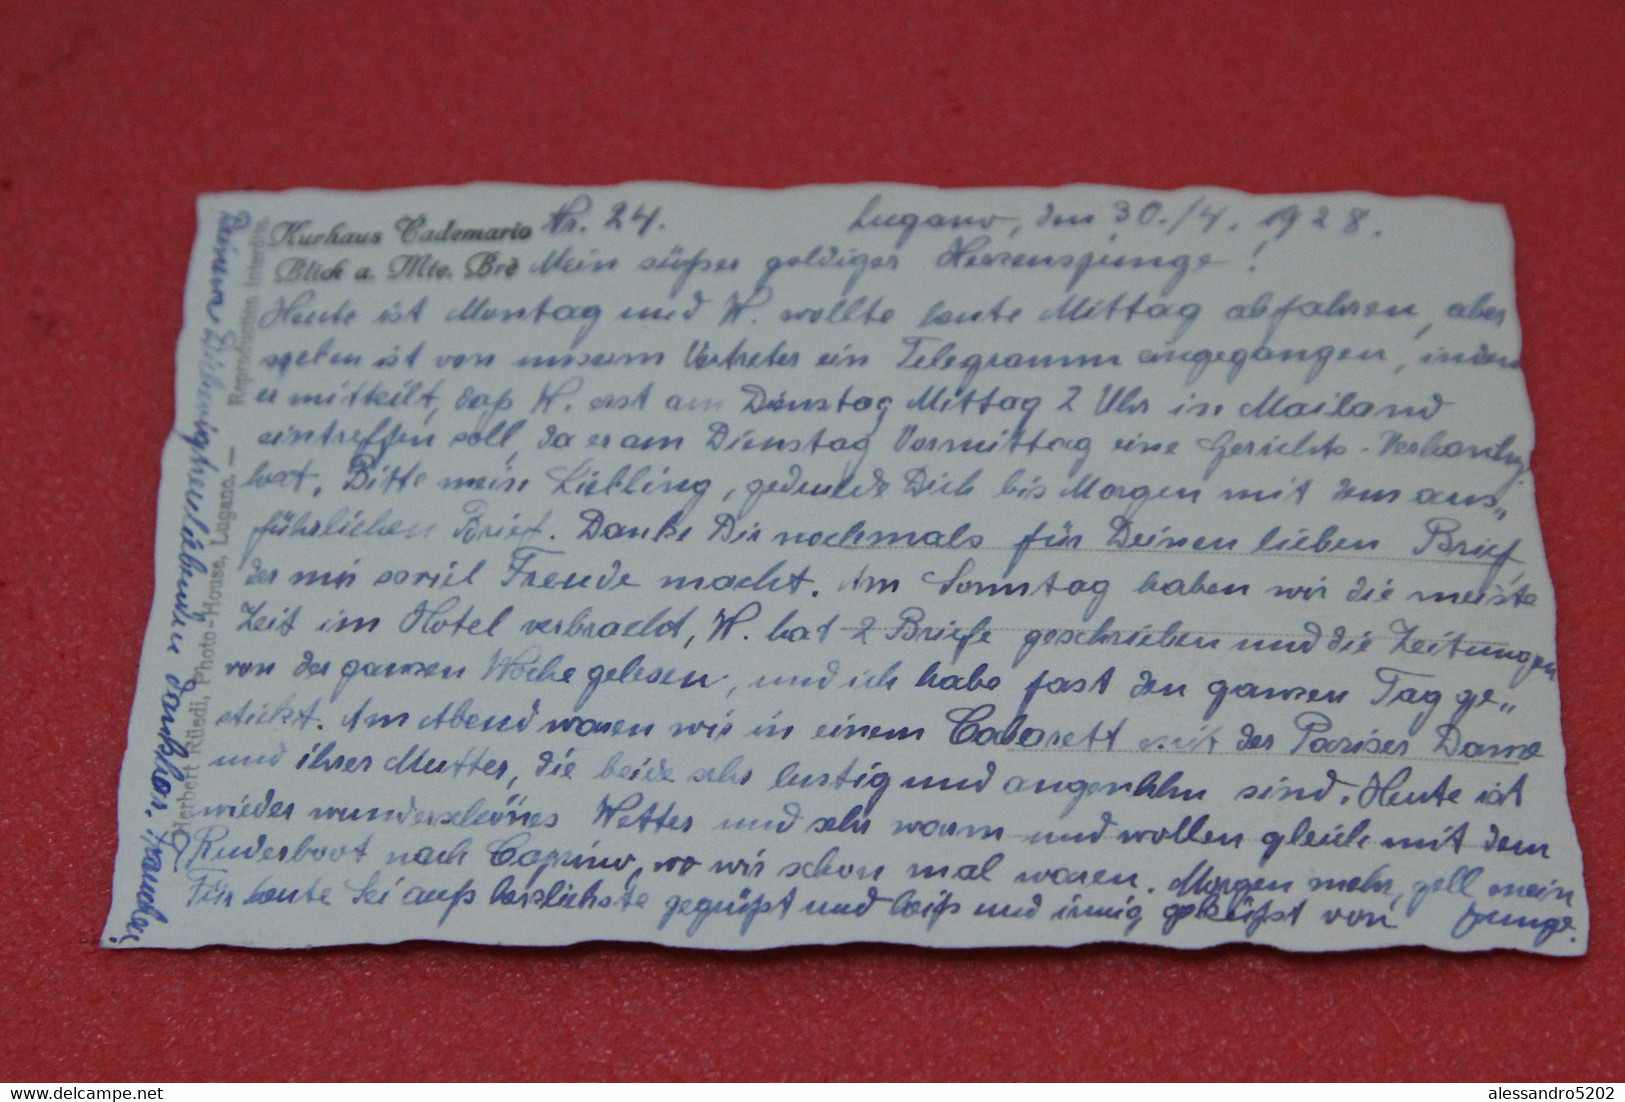 Kurhaus Cademario Nr. 24. Lugano, den 30./4. 1928.
Blick a. Mte. Brè Mein süßer goldiger Herzensjunge!
Heute ist Montag und W. wollte heute Mittag abfahren, aber
soeben ist von unserm Vertreter ein Telegramm eingegangen, indem
er mitteilt, daß W. erst am Dienstag Mittag 2 Uhr in Mailand
eintreffen soll, da er am Dienstag Vormittag eine Gerichts-Verhandlg.
hat. Bitte mein Liebling, gedulde Dich bis Morgen mit dem aus„
führlichen Brief. Danke Dir nochmals für Deinen lieben Brief
der mir soviel Freude macht. Am Sonntag haben wir die meiste
Zeit im Hotel verbracht, W. hat 2 Briefe geschrieben und die Zeitungen
von der ganzen Woche gelesen, und ich habe fast den ganzen Tag ge„
stickt. Am Abend waren wir in einem Cabarett mit der Pariser Dame
und ihrer Mutter, die beide sehr lustig und angenehm sind. Heute ist
wieder wunderschönes Wetter und sehr warm und wollen gleich mit dem
Ruderboot nach Caprino, wo wir schon mal waren. Morgen mehr, gell mein
Für heute sei aufs herzlichste gegrüßt und heiß und innig geküßt von Junge.
Deinem Dich ewig treu liebenden dankbar.
Reproduction interdite.
Herbert Rüedi, Photo-House, Lugano. —
alessandro5202
delcampe.net